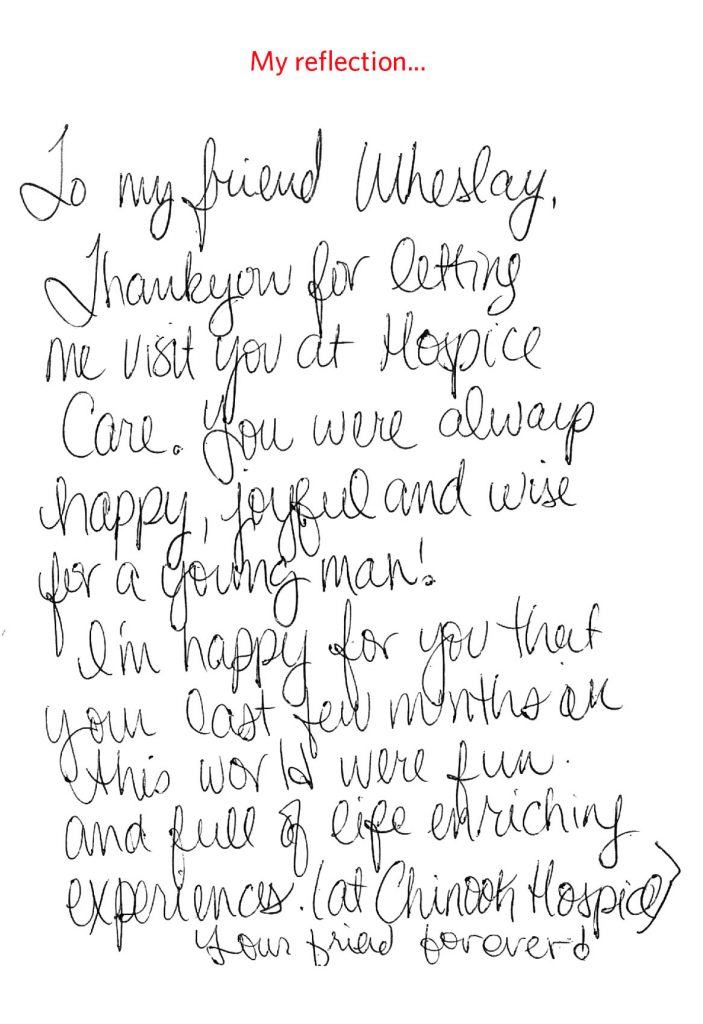 My reflection...
To my friend Wheslay,
Thankyou for letting
me visit you at Hospice
Care. You were always
happy, joyful and wise
for a young man!
I'm happy for you that
your last few months on
this world were fun.
and full of life enriching
experiences. (at Chinook Hospice)
Your fried forever!